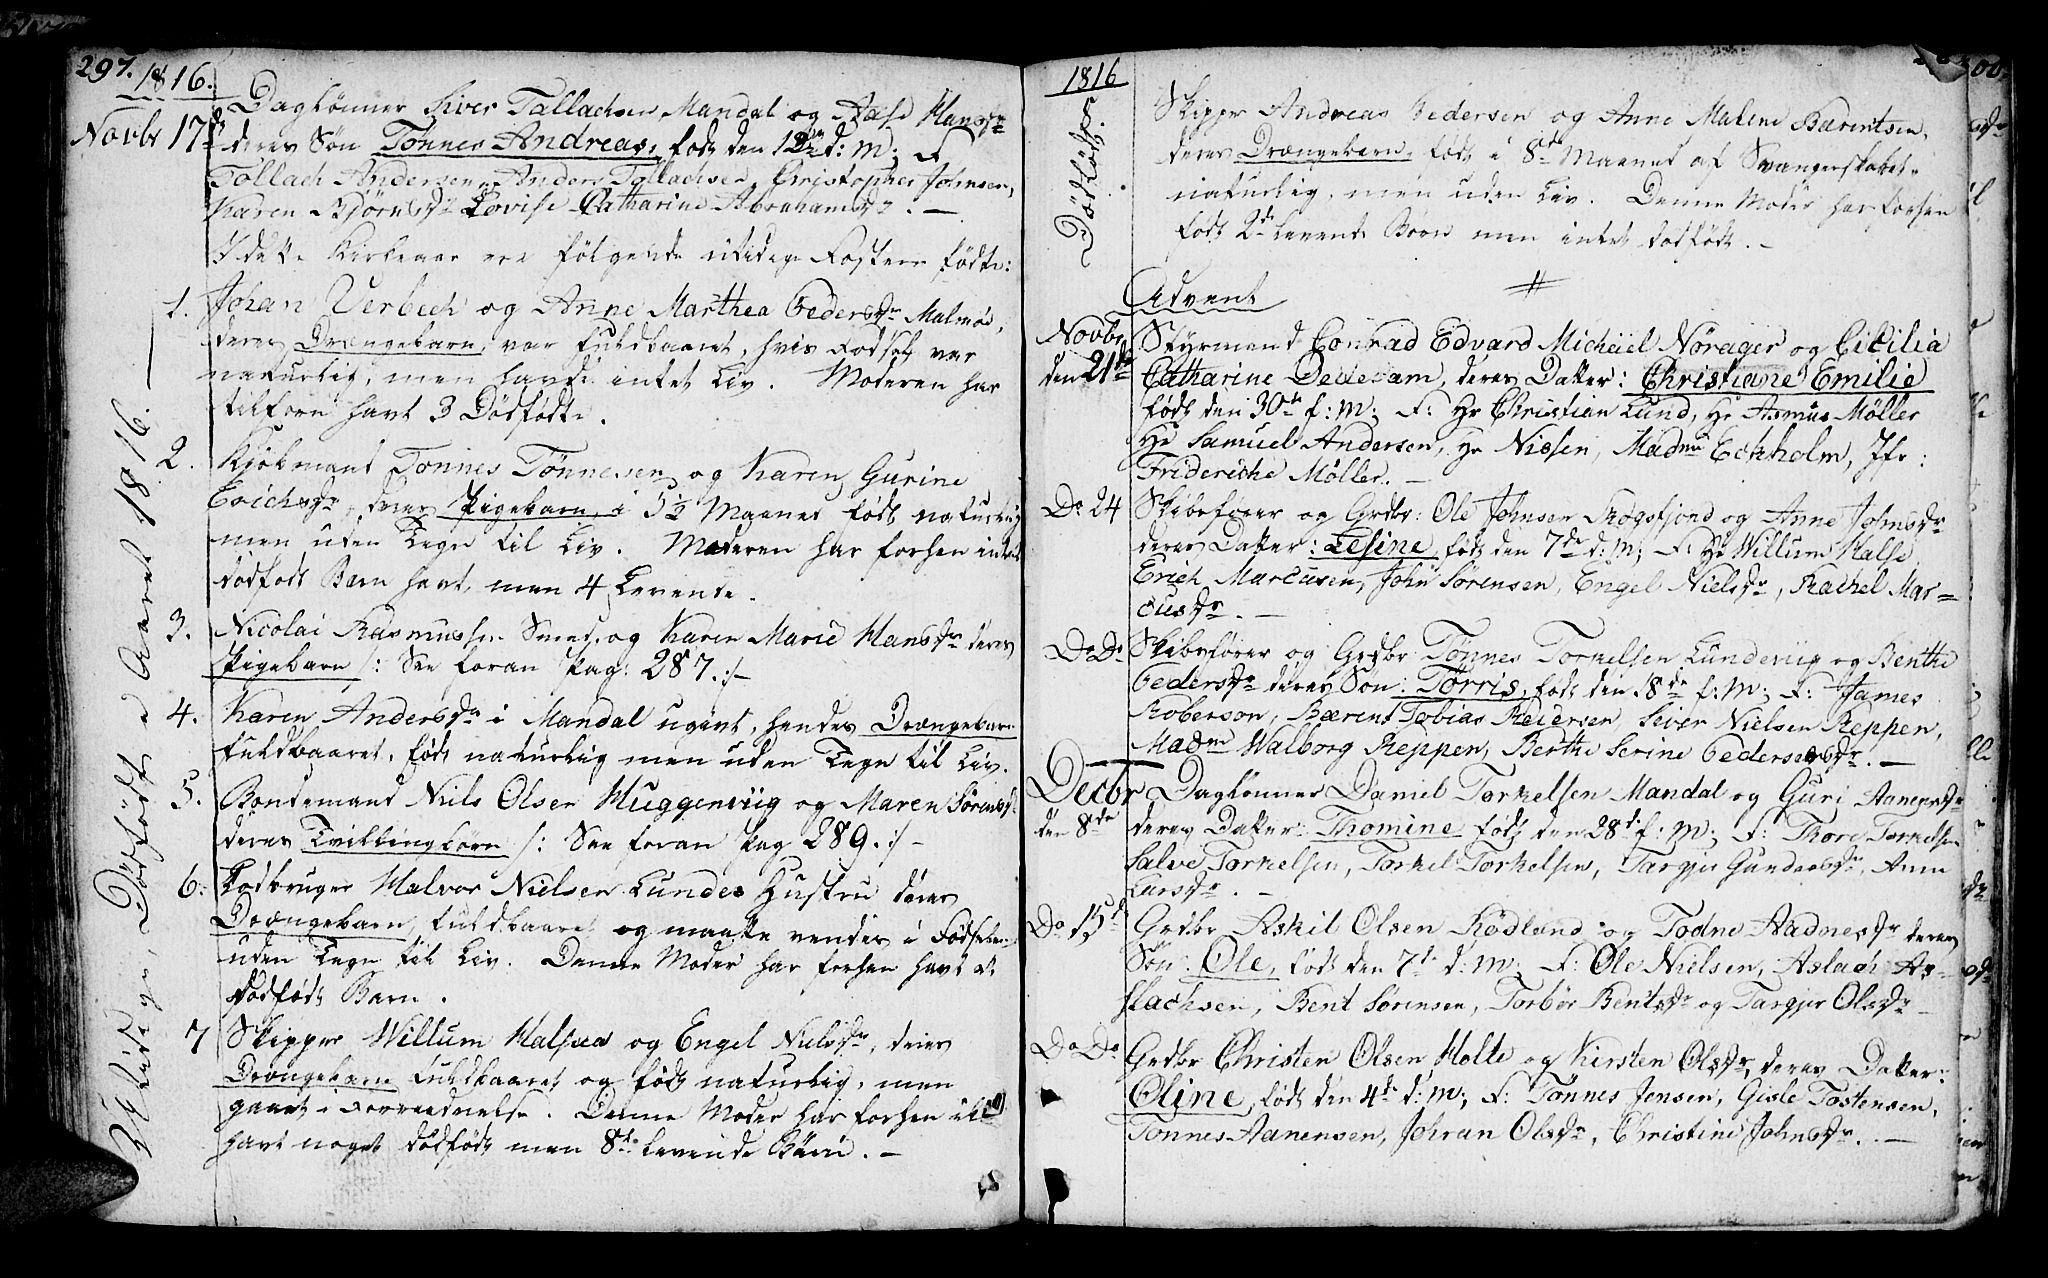 297.
1816.
Novbr 17de
Daglønner Siver Tallachsen Mandal og Aase Hansdr
deres Søn Tønnes Andreas, født den 12te d: M; F.
Tollach Andersen, Anders Tallachsen, Christopher Johnsen,
Karen Bjørnsdr Lovise Catharine Abrahamsdr. —
I dette Kirkeaar ere følgende utidige Fostere fødte:
Utidige, Dødfødte i Aaret 1816. —
1. Johan Verbech og Anne Marthea Pedersdr Malmøe,
deres Drængebarn, var fuldbaaret, hvis Fødsel var
naturlig, men havde intet Liv. Moderen har
tilforn havt 3 Dødfødte.
2. Kjøbmand Tønnes Tønnesen og Karen Gurine
Erichsdr, deres Pigebarn, i 5½ Maaned født naturlig
men uden Tegn til Liv. Moderen har forhen intet
dødfødt Barn havt, men 4 Levende.
3. Nicolai Rasmussen Smed, og Karen Marie Hansdr deres
Pigebarn /: See foran Pag: 287. :/
4. Karen Andersdr i Mandal ugivt, hendes Drængebarn
fuldbaaret, født naturlig men uden Tegn til Liv.
5. Bondemand Niels Olsen Muggenviig og Maren Sørensdr
deres Tvillingbørn /: See foran Pag 289. :/ -
6. Lodbruger Halvor Nielsen Lundes Hustru deres
Drængebarn, fuldbaaret og maatte vendes i Fødselen
uden Tegn til Liv. Denne Moder har forhen havt et
dødfødt Barn.
7 Skipper Willum Halsen og Engel Nielsdr, deres
Drængebarn fuldbaaret og født naturlig, men
gaaet i Forraadnelse. Denne Moder har forhen ikke
havt noget dødfødt men 8te levende Børn. —
1816
Dødfødte.
Skipper Andreas Pedersen og Anne Malene Bærentsen,
deres Drængebarn, født i 8de Maaned af Svangerskabet
naturlig, men uden Liv. Denne Moder har forhen
født 2de levende Børn men intet dødfødt. -
Advent
Novbr
den 21de
Styrmand Conrad Edvard Michael Nørager og Cicilia
Catharine Dedekam, deres Datter: Christiane Emilie
født den 30te f: M; F: Hr Christian Lund, Hr Asmus Møller
Hr Samuel Andersen, Hr Nissen, Madme Eckholm, Jfr:
Frideriche Møller. —
Do 24
Skibsfører og Grdbr: Ole Johnsen Skogsfjord og Anne Johnsdr
deres Datter: Lesine født den 7de d: M; F: Hr Willum Halse
Erich Marcusen, John Sørensen, Engel Nielsdr, Rachel Mar=
cusdr. —
Do Do
Skibsfører og Grdbr Tønnes Torkelsen Lundeviig og Benthe
Pedersdr deres Søn: Tørris, født den 18de f: M; F: James
Roberson, Bærent Tobias Reiersen, Siver Nielsen Reppen,
Madme Walborg Reppen, Berthe Serine Pedersensdr. —
Decbr
den 8de
Daglønner Daniel Torkelsen Mandal og Guri Aanensdr
deres Datter: Thomine født den 28de f: M; F: Thore Torkelsen
Salve Torkelsen, Torkel Torkelsen, Targjer Gundersdr, Anne
Larsdr. -
Do 15de
Grdbr Askil Olsen Rødland og Todne Aadnesdr deres
Søn: Ole, født den 7de d: M; F: Ole Nielsen, Aslach As=
slachsen, Bent Sørensen, Torbør Bentsdr og Targjer Olsdr —
Do Do
Grdbr Christen Olsen Holte og Kirsten Olsdr, deres Datter:
Oline, født den 4de d: M; F: Tønnes Jensen, Gisle Tostensen,
Tønnes Aanensen, Johran Olsdr, Christine Johnsdr. —